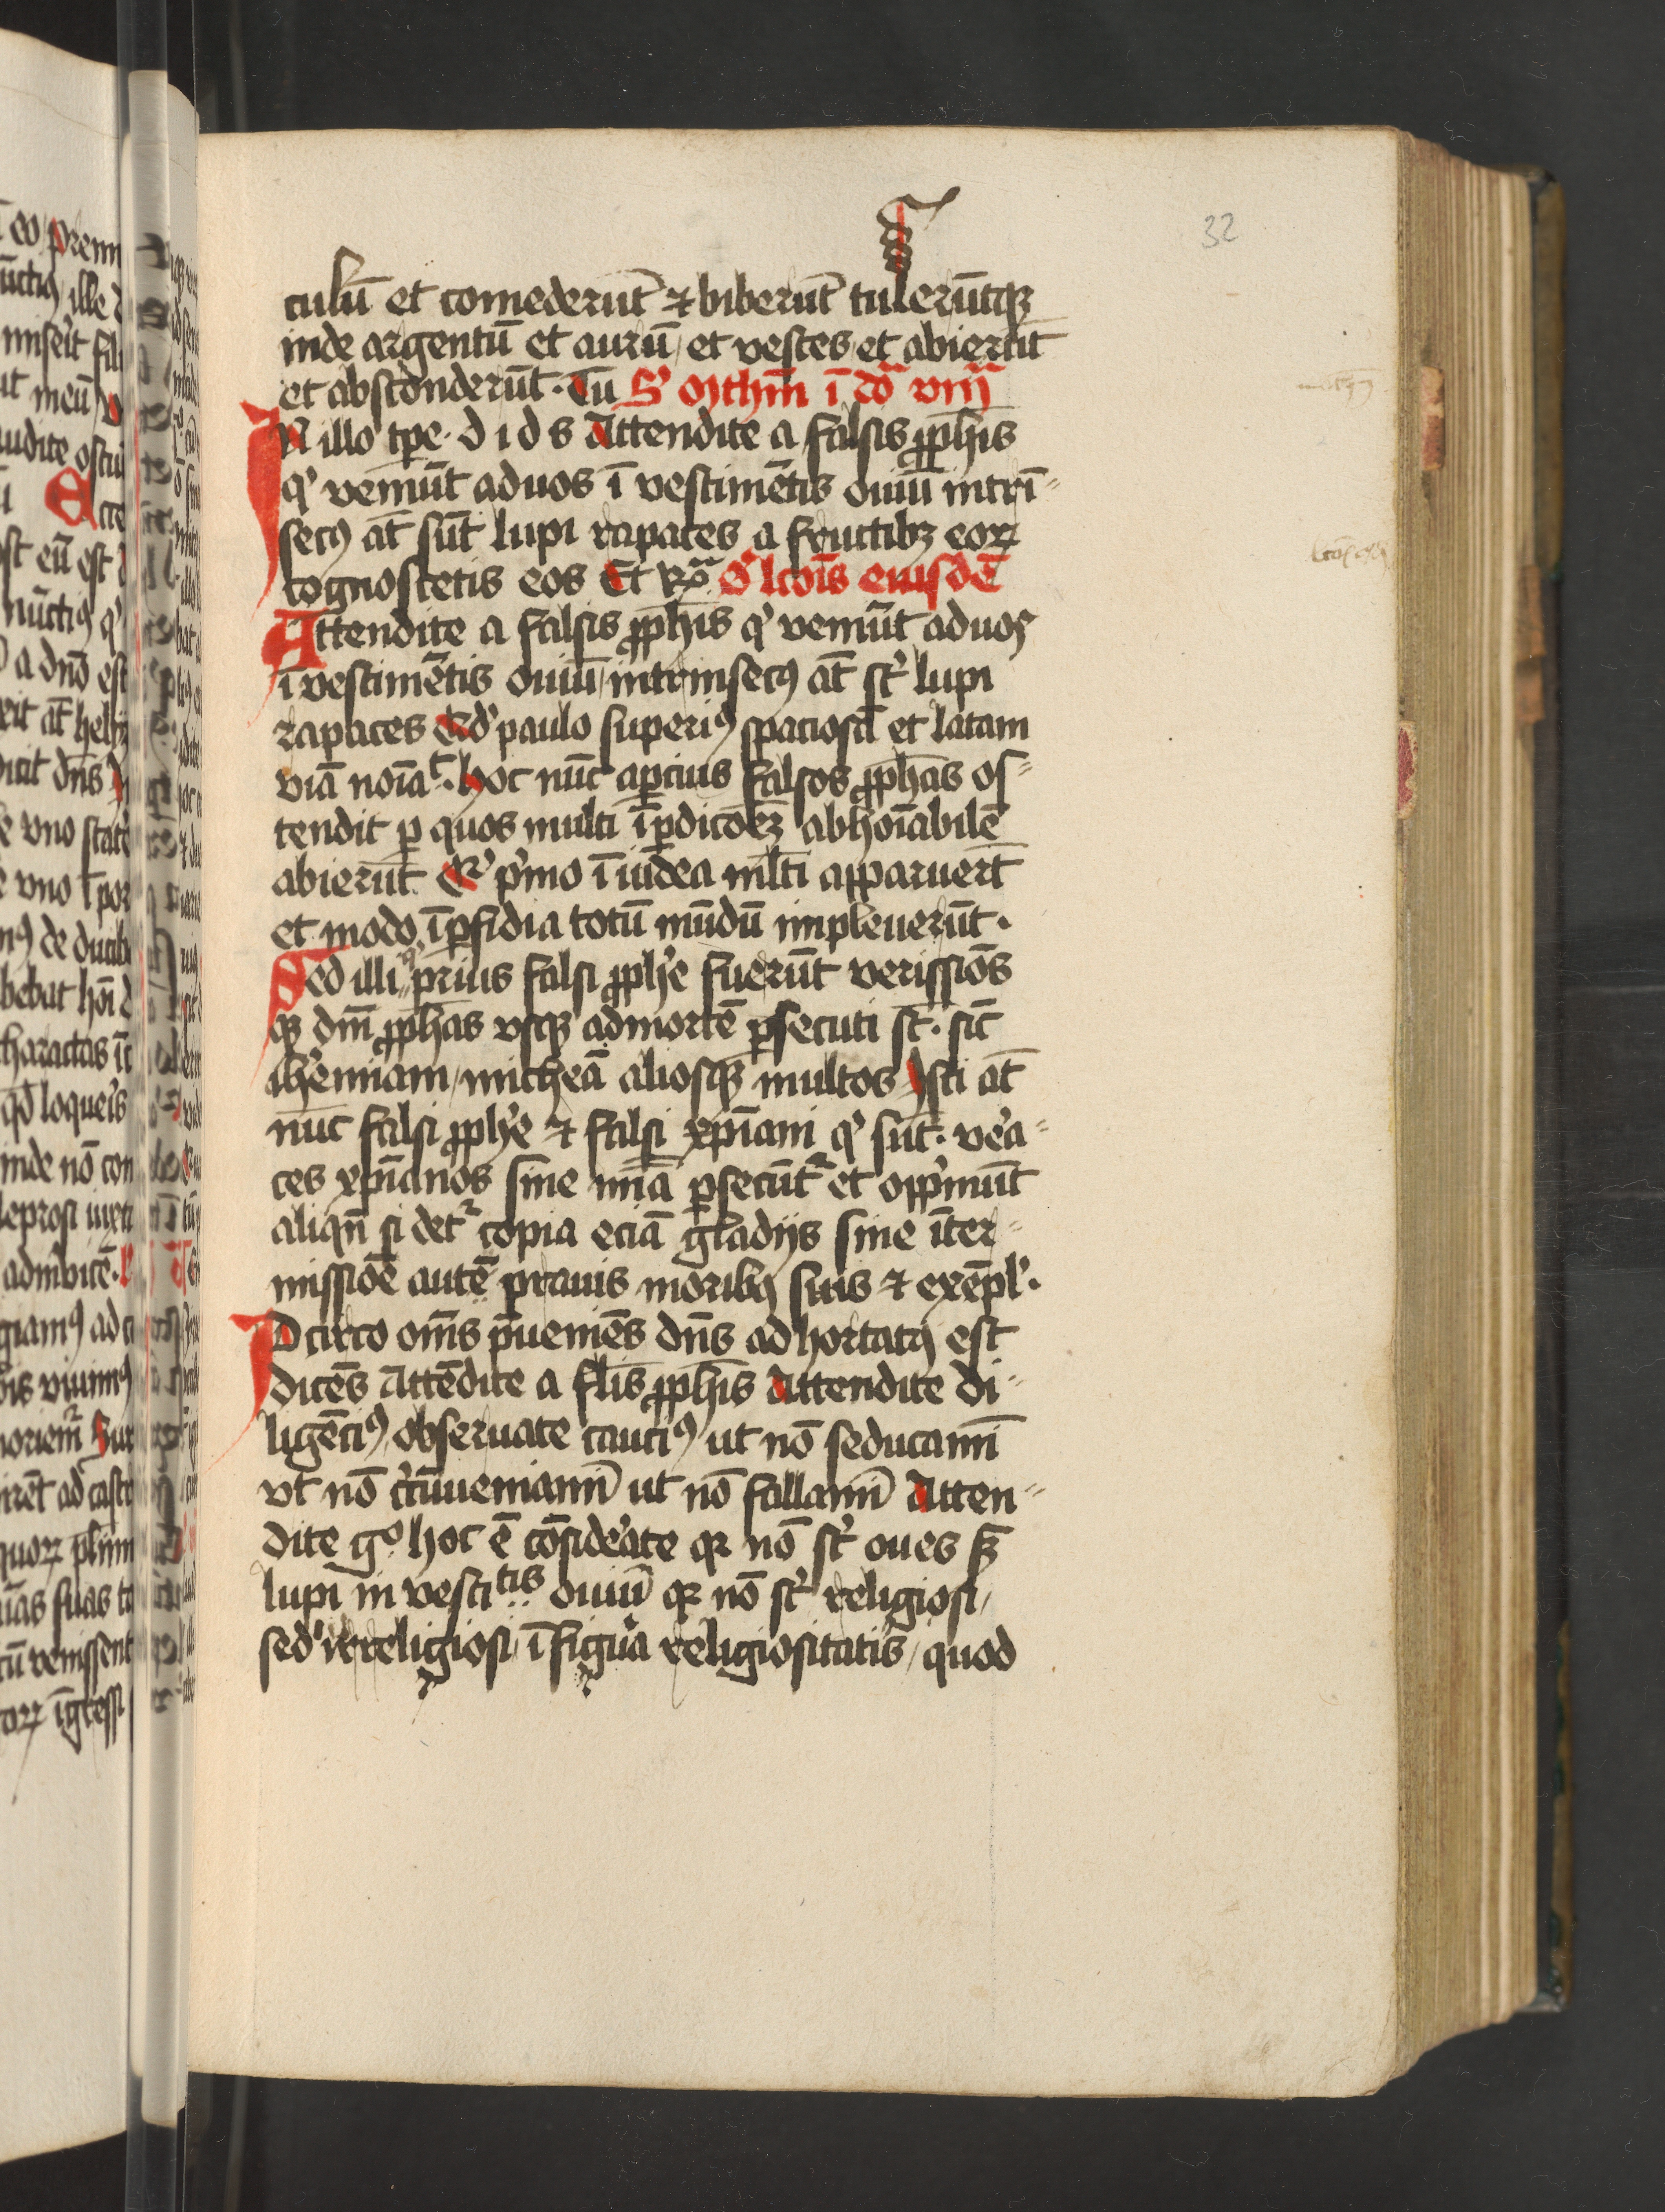 32
culū et comederūt ⁊ biberūt tulerūtqꝫ
inde argentū et aurū et vestes et abierūt
et absconderūt. Tu S' Mthm̄ ī doᷓ viij
IN illo tp̄e. d i d s Attendite a falsis ꝓph̄is
qͥ veniūt ad uos ī vestimētis ouiū intrī⸗
secꝰ at̄ sūt lupi rapaces a fructibꝫ eoꝝ
cognoscetis eos Et Rᷓ Om̄l' lcōis eiusdē
Attendite a falsis ꝓph̄is qͥ veniūt ad uos
ī vestimētis ouiū intrinsecꝰ at̄ st̄ lupi
rapaces Qd' paulo superiꝰ spaciosā et latam
viā noīaᵗ. hoc nūc apcius falsos ꝓph̄as os⸗
tendit ꝑ quos multi ī ꝑdicōeꝫ abhoīabilē
abierūt. Qꝛ pͥmo ī iudea ml̄ti apparuerūt
et modo ī ꝑfidia totū mūdū impleuerūt.
Sed illi qͥ prius falsi ꝓph̄e fuerūt verissiōs
qꝫ dn̄i ꝓph̄as vsqꝫ ad mortē ꝑsecuti st̄. sic̄
ih̄emiam, micheā aliosqꝫ multos Isti at̄
nūc falsi ꝓph̄e ⁊ falsi xp̄iani qͥ sūt. vera⸗
ces xp̄ianos sine mīa ꝑsecūtᷣ et oppͥmūt
aliqn̄ si detᷣ copia eciā gladijs sine īter⸗
missiōe autē prauis moribꝰ suis ⁊ exēpl'.
IDcirco om̄s p̄ueniēs dn̄s adhortatꝰ est
dicēs Attēdite a fl̄is ꝓph̄is Attendite di⸗
ligēciꝰ obseruate cauciꝰ ut nō seducamī
vt nō cͥcūueniamī ut nō fallamī Atten⸗
dite gͦ hoc ē cōsiderate qꝛ nō st̄ oues sꝫ
lupi in vestiᵗⁱˢ ouiū qꝛ nō st̄ religiosi,
sed' irreligiosi ī figura religiositatis, quod